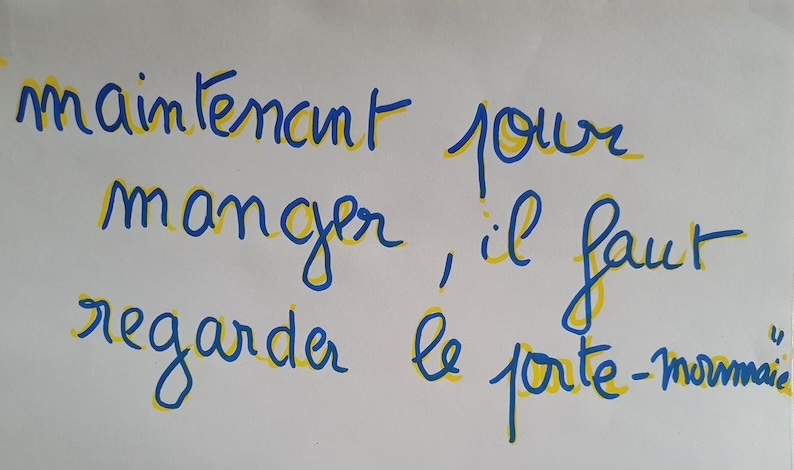 maintenant pour
manger, il faut
regarder le porte-monnaie"